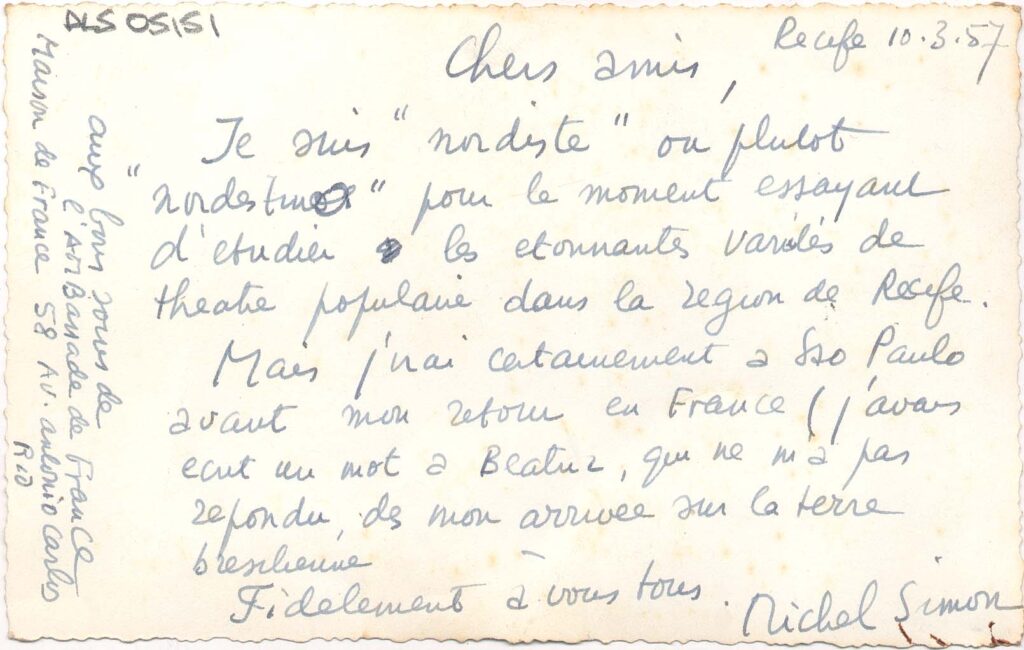 ALS 05151
Recife 10.3.57
Chers amis,
Je suis "nordiste" ou plutot
"nordestino" pour le moment essayant
d'etudier les etonnantes variétés de
theatre populaire dans la region de Recife.
Mais j'irai certainement a Sao Paulo
avant mon retour en France (j'avais
ecrit un mot a Beatriz, qui ne m'a pas
repondu, des mon arrivee sur la terre
bresilienne
Fidelement à vous tous.
Michel Simon
aux bons soins de
l'Ambassade de France
Maison de France 58 Av. antonio Carlos
Rio